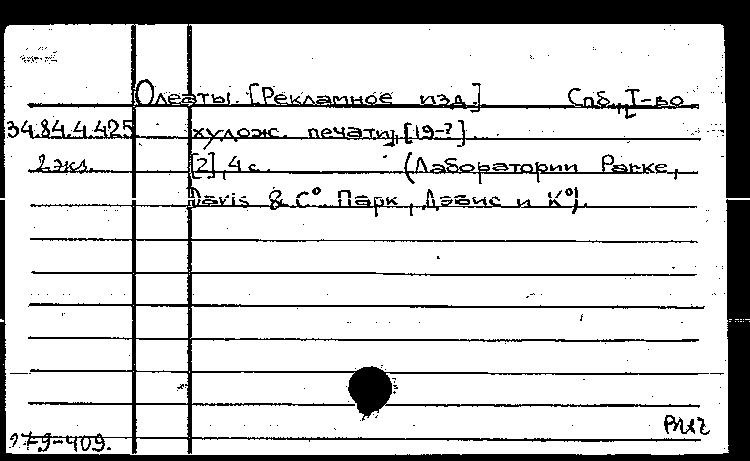 Олеаты. [Рекламное изд.]. Спб., Т-во
34.84.4.425 худож. печати, [19-?].
2 экз. [2], 4 с. (Лаборатории Parke,
Davis & Cº. Парк, Дэвис и Кº).
979-409.